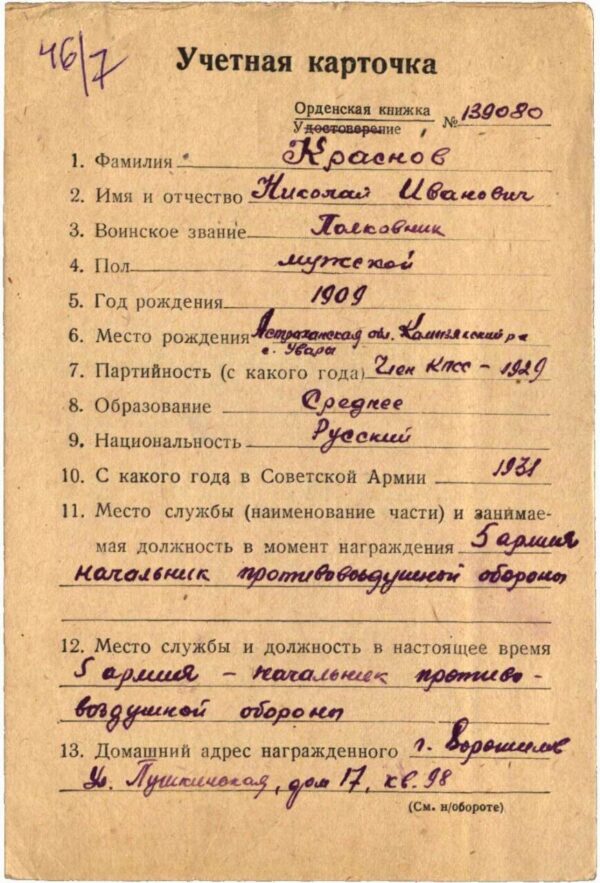 46/7
Учетная карточка
Орденская книжка
Удостоверение № 139080
1. Фамилия Краснов
2. Имя и отчество Николай Иванович
3. Воинское звание Полковник
4. Пол мужской
5. Год рождения 1909
6. Место рождения Астраханская обл.
с. Увары
7. Партийность (с какого года) Член КПСС – 1929
8. Образование Среднее
9. Национальность Русский
10. С какого года в Советской Армии 1931
11. Место службы (наименование части) и занимае-
мая должность в момент награждения 5 армия
начальник противовоздушной обороны
12. Место службы и должность в настоящее время
5 армия – начальник противо-
воздушной обороны
13. Домашний адрес награжденного г. Ворошилов
Ул. Пушкинская, дом 17, кв. 98
(См. н/обороте)